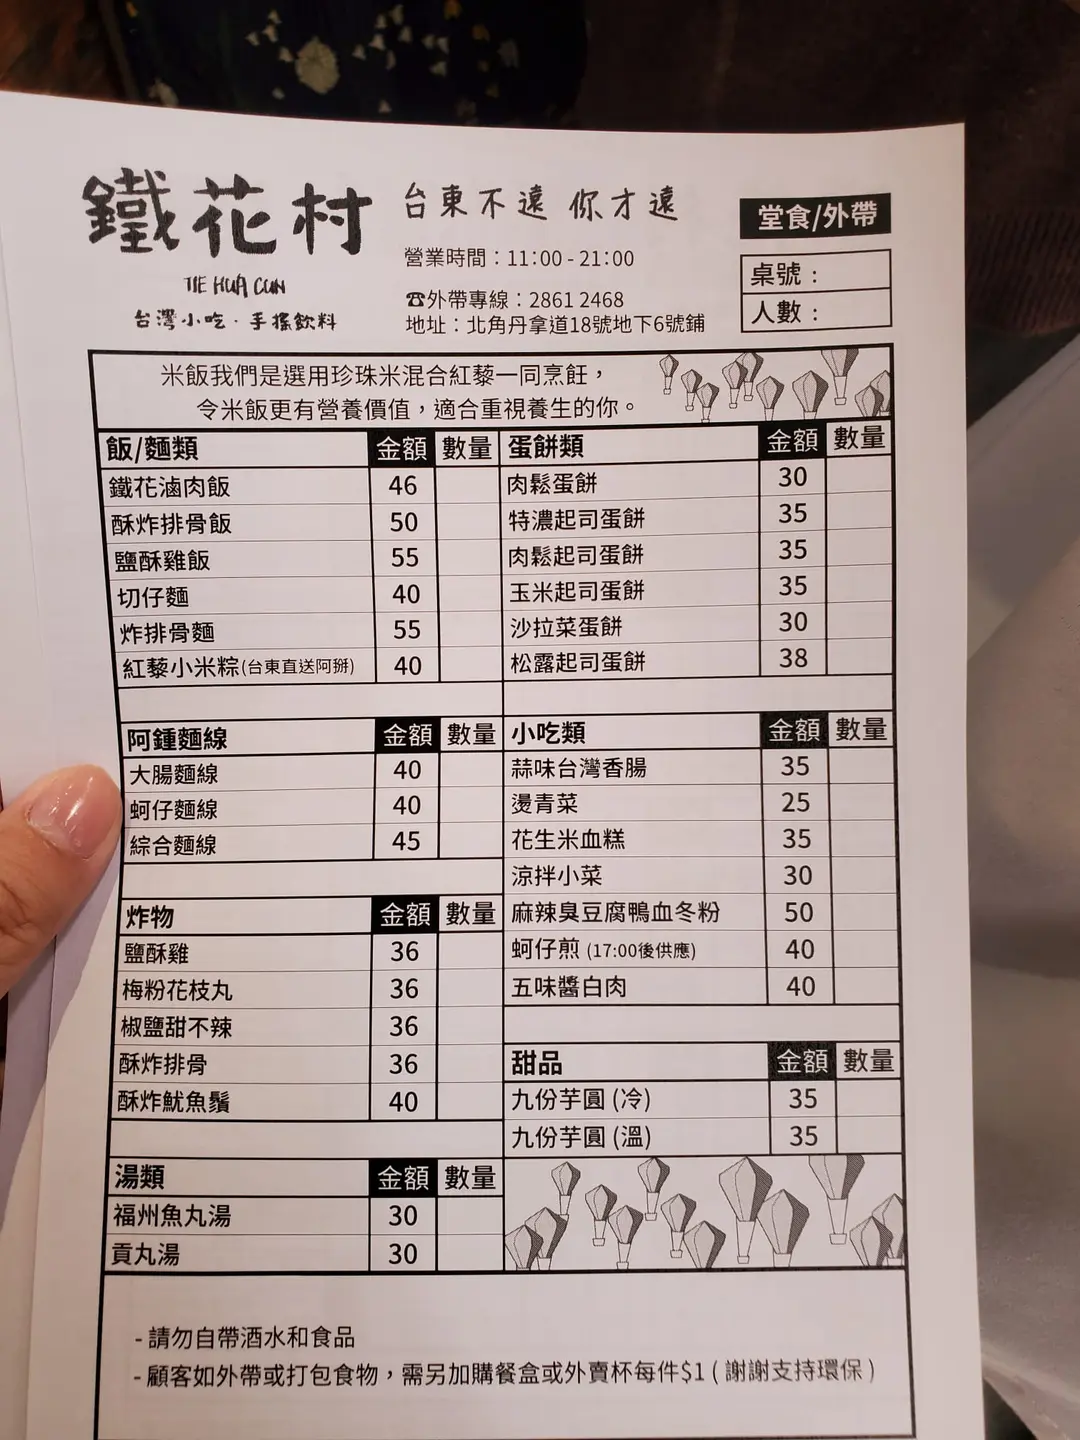 鐵花村
TIE HUA CUN
台灣小吃・手搖飲料
台東不遠 你才遠
營業時間：11:00 - 21:00
☎外帶專線：2861 2468
地址：北角丹拿道18號地下6號鋪
堂食/外帶
桌號：
人數：
米飯我們是選用珍珠米混合紅藜一同烹飪，
令米飯更有營養價值，適合重視養生的你。
飯/麵類 金額 數量
鐵花滷肉飯 46
酥炸排骨飯 50
鹽酥雞飯 55
切仔麵 40
炸排骨麵 55
紅藜小米粽(台東直送阿掰) 40
阿鍾麵線 金額 數量
大腸麵線 40
蚵仔麵線 40
綜合麵線 45
炸物 金額 數量
鹽酥雞 36
梅粉花枝丸 36
椒鹽甜不辣 36
酥炸排骨 36
酥炸魷魚鬚 40
湯類 金額 數量
福州魚丸湯 30
貢丸湯 30
蛋餅類 金額 數量
肉鬆蛋餅 30
特濃起司蛋餅 35
肉鬆起司蛋餅 35
玉米起司蛋餅 35
沙拉菜蛋餅 30
松露起司蛋餅 38
小吃類 金額 數量
蒜味台灣香腸 35
燙青菜 25
花生米血糕 35
涼拌小菜 30
麻辣臭豆腐鴨血冬粉 50
蚵仔煎 (17:00後供應) 40
五味醬白肉 40
甜品 金額 數量
九份芋圓 (冷) 35
九份芋圓 (溫) 35
- 請勿自帶酒水和食品
- 顧客如外帶或打包食物，需另加購餐盒或外賣杯每件$1 ( 謝謝支持環保 )